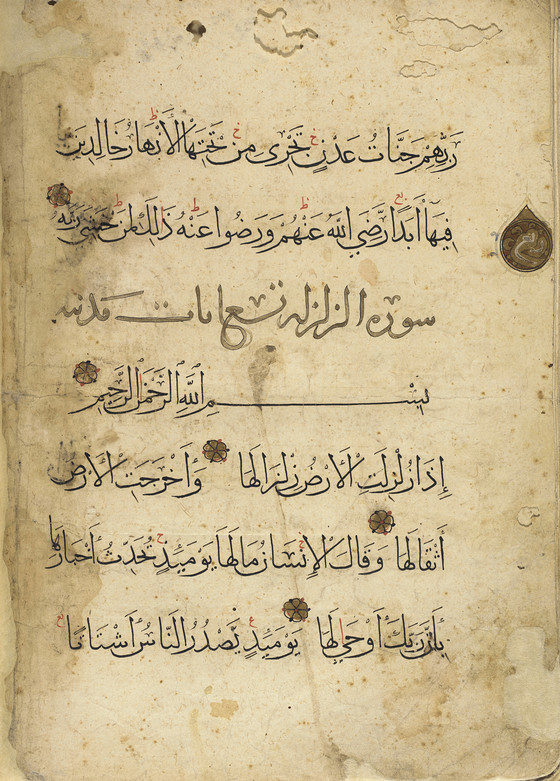 رَبِّهِمْ جَنَّاتُ عَدْنٍ تَجْرِى مِنْ تَحْتِهَا الْأَنْهَارُ خَالِدِينَ
فِيهَا أَبَدًا رَّضِيَ اللهُ عَنْهُمْ وَرَضُوا عَنْهُ ذَالِكَ لِمَنْ خَشِيَ رَبَّهُ
سورة الزلزلة تسع ايات مدنية
بِسْمِ اللهِ الرَّحْمَنِ الرَّحِيمِ
إِذَا زُلْزِلَتِ الْأَرْضُ زِلْزَالَهَا وَأَخْرَجَتِ الْأَرْضُ
أَثْقَالَهَا وَقَالَ الْإِنْسَانُ مَا لَهَا يَوْمَئِذٍ تُحَدِّثُ أَخْبَارَهَا
بِأَنَّ رَبَّكَ أَوْحَى لَهَا يَوْمَئِذٍ يَّصْدُرُ النَّاسُ أَشْتَاتًا